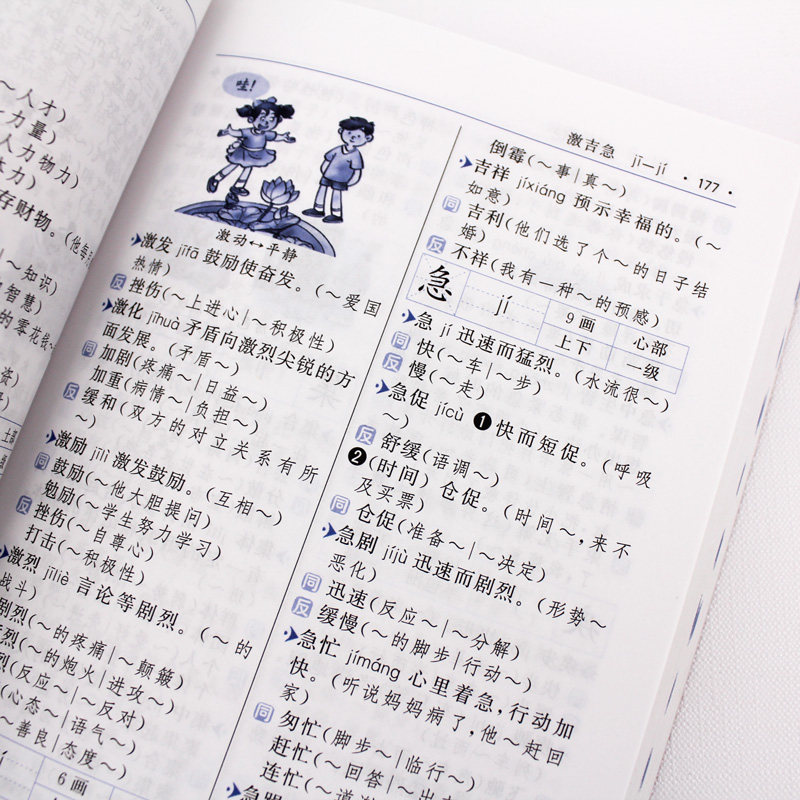 ～人才)
～力量)
人力物力)
体力)
存财物。(他每
～知识)
智慧)
的零花钱～
资)
哇!
激动↔平静
激发 jīfā 鼓励使奋发。(～爱国
热情)
反 挫伤(～上进心|～积极性)
激化 jīhuà 矛盾向激烈尖锐的方
面发展。(矛盾～)
同 加剧(疼痛～|日益～)
加重(病情～|负担～)
反 缓和(双方的对立关系有所
～)
激励 jīlì 激发鼓励。(互相～)
同 鼓励(～他大胆提问)
勉励(～学生努力学习)
反 挫伤(～自尊心)
打击(～积极性)
激烈 jīliè 言论等剧烈。(～的
战斗)
剧烈(～的疼痛|～颠簸)
烈(～的炮火|进攻～)
烈(反应～|～反对)
(心态～|语气～)
(～善良|态度～)
6画
激吉急 jī—jí ·177·
倒霉(～事|真～)
吉祥 jíxiáng 预示幸福的。(～
如意)
同 吉利(他们选了个～的日子结
婚)
反 不祥(我有一种～的预感)
急 jí 9画 心部
上下 一级
急 jí 迅速而猛烈。(水流很～)
同 快(～车|～步)
反 慢(～走)
急促 jícù ❶快而短促。(呼吸
～)
反 舒缓(语调～)
❷(时间)仓促。(时间～,来不
及买票)
同 仓促(准备～|～决定)
急剧 jíjù 迅速而剧烈。(形势～
恶化)
同 迅速(反应～|～分解)
反 缓慢(～的脚步|行动～)
急忙 jímáng 心里着急,行动加
快。(听说妈妈病了,他～赶回
家)
同 匆忙(脚步～|临行～)
赶忙(～回答|～出
连忙(～道